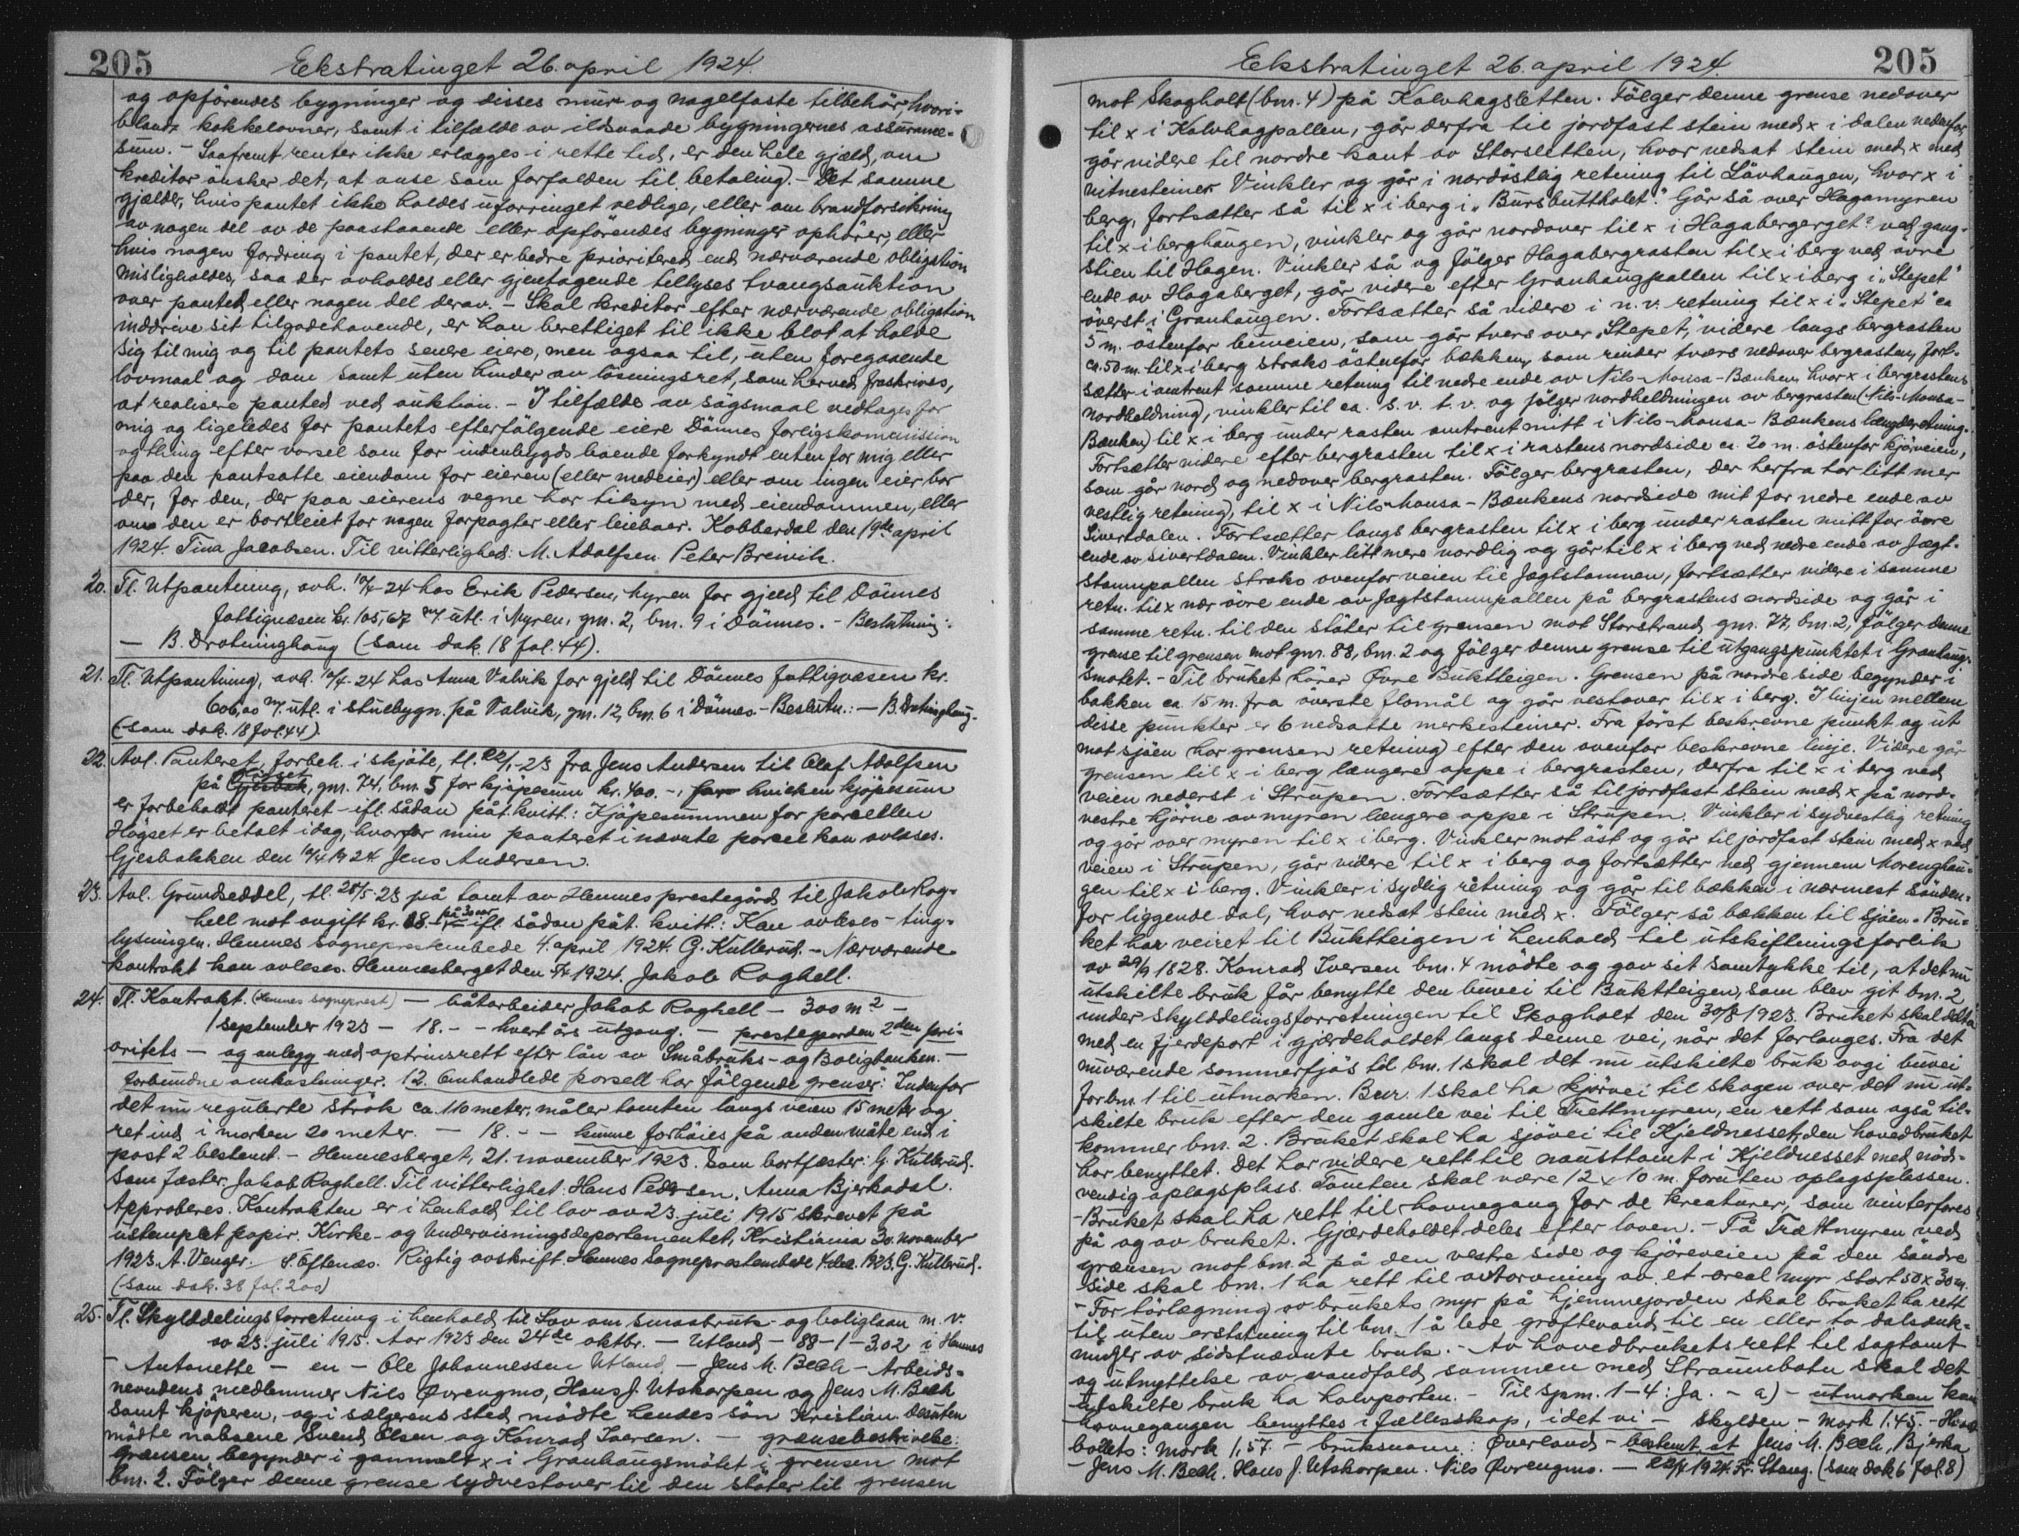 205
Ekstratinget 26. april 1924.
og opförendes bygninger og disses mur og nagelfaste tilbehör hvori-
blandt kakkelovner, samt i tilfælde av ildsvaade bygningernes assurance-
sum. - Saafremt renter ikke erlægges i rette tid, er den hele gjæld, om
kreditor önsker det, at anse som forfalden til betaling. - Det samme
gjælder, hvis pantet ikke holdes uforringet vedlige, eller om brandforsikring
av nogen del av de paastaaende eller opförendes bygninger ophörer, eller
hvis nogen fordring i pantet, der er bedre prioritered end nærværende obligation
misligholdes, saa der avholdes eller gjentagende tillyses tvangsauktion
over pantet eller nogen del derav. - Skal kreditor efter nærværende obligation
inddrive sit tilgodehavende, er han berettiget til ikke blot at holde
sig til mig og til pantets senere eiere, men ogsaa til, uten foregaaende
lovmaal og dom samt uten hinder av lösningsret, som herved fraskrives,
at realisere pantet ved auktion. - I tilfælde av sögsmaal vedtages for
mig og ligeledes for pantets efterfölgende eiere Dönnes forligskommission
og thing efter varsel som for indenbygds boende forkyndt enten for mig eller
paa den pantsatte eiendom for eieren (eller medeier) eller om ingen eier bor
der, for den, der paa eierens vegne har tilsyn med eiendommen, eller
om den er bortleiet for nogen forpagter eller leieboer. Kobberdal den 19de april
1924. Tina Jacobsen. Til vitterlighed: M. Adolfsen Peter Breivik.
20. Tl. Utpantning, avh. 10/4-24 hos Erik Pedersen, Myren for gjeld til Dönnes
fattigvæsen kr. 105,67 m/ utl. i Myren, gnr. 2, bnr. 9 i Dönnes. - Beslutning:
- B. Drotninghaug (som dok. 18 fol. 44).
21. Tl. Utpantning, avh. 10/4-24 hos Anna Valvik for gjeld til Dönnes fattigvæsen kr.
606,00 m/ utl. i stuebygn. på Valvik, gnr. 12, bnr. 6 i Dönnes - Beslutn.: - B. Drotninghaug.
(som dok. 18 fol. 44).
22. Avl. Panteret, forbeh. i skjöte, tl. 22/1-23 fra Jens Andersen til Olaf Adolfsen
på Högset, gnr. 74, bnr. 5 for kjöpesum kr. 400. -, for hvilken kjöpesum
er forbeholdt panteret - ifl. sådan påt. kvitt.: Kjöpesummen for parcellen
Högset er betalt idag, hvorfor min panteret i nævnte parcel kan avlöses.
Gjesbakken den 10/4 1924 Jens Andersen.
23. Avl. Grundseddel, tl. 28/5-23 på tomt av Hemnes prestegård til Jakob Rog-
hell mot avgift kr. 18.- på 30 år ifl. sådan påt. kvitt.: Kan avlöses - ting-
lysningen. Hemnes sogneprestembede 4. april 1924. G. Kullerud. - Nærværende
kontrakt kan avleses. Hemnesberget den 7/4 1924. Jakob Roghell.
24. Tl. Kontrakt. (Hemnes sogneprest) - båtarbeider Jakob Roghell - 300 m2 -
1 september 1923 - 18. - - hvert års utgang. - prestegarden 2den pri-
oritets - og anlegg med optrinsrett efter lån av Småbruks- og Boligbanken. -
forbundne omkostninger. 12. Omhandlede porsell har fölgende grenser: Indenfor
det nu regulerte strök ca. 110 meter, måler tomten langs veien 15 meter og
ret ind i marken 20 meter. - 18. - - kunne forhöies på anden måte end i
post 2 bestemt. - Hemnesberget, 21. november 1923. Som bortfæster: G. Kullerud.
Som fæster. Jakob Roghell. Til vitterlighet: Hans Pedersen. Anna Bjerkadal.
Approberes. Kontrakten er i henhold til lov av 23. juli 1915 skrevet på
ustemplet papir. Kirke- og Undervisningsdepartementet, Kristiania 30. november
1923. A. Venger. S. Öftenæs. Rigtig avskrift Hemnes Sogneprestembede 4 des. 1923. G. Kullerud.
(Som dok. 38 fol. 200)
25. Tl. Skylddelingsforretning i henhold til Lov om smaabruk- og boliglaan m. v.
av 23. juli 1915. Aar 1923 den 24de oktbr. - Utland - 88-1-3,02 i Hemnes
- Antonette - en - Ole Johannessen Utland - Jens M. Bech - Arbeids-
nevndens medlemmer Nils Övrengmo, Hans J. Utskarpen og Jens M. Bech
samt kjöperen, og i sælgerens sted mödte hendes sön Kristian. Desuten
mödte naboene Svend Olsen og Konrad Iversen. - grænsebeskrivelse:
Grænsen begynder i gammelt x i Granhaugsmötet i grensen mot
bnr. 2. Fölger denne grense sydvestover til den stöter til grensen
Ekstratinget 26. april 1924.
205
mot Skogholt (bnr. 4) på Kalvhagsletten. Fölger denne grense nedover
til x i Kalvhagpallen, går derfra til jordfast stein med x i dalen nedenfor
går videre til nordre kant av Storsletten, hvor nedsat stein med x med
vitnesteiner Vinkler og går i nordöstlig retning til Lövhaugen, hvor x i
berg, fortsætter så til x i berg i "Bursbuttholet". Går så over Hagamyren
til x i berghaugen, vinkler og går nordover til x i Hagabergerget? ved gang-
stien til Hagen. Vinkler så og fölger Hagabergrasten til x i berg ved övre
ende av Hagaberget, går videre efter Granhaugpallen til x i berg i "Stepet"
överst i Granhaugen. Fortsætter så videre i n.v. retning til x i "Stepet" ca
5 m. östenfor buveien, som går tvers over "Stepet", videre langs bergrasten
ca. 50 m. til x i berg straks östenfor bækken, som render tværs nedover bergrasten, fort-
sætter i omtrent samme retning til nedre ende av Nils-Monsa-Bænken hvor x i bergrastens
nordheldning, vinkler til ca. s. v. t. v. og fölger nordheldningen av bergrasten (Nils-Monsa-
Bænken) til x i berg under rasten omtrent mitt i Nils-Monsa-Bænkens længderetning.
Fortsætter videre efter bergrasten til x i rastens nordside ca. 20 m. östenfor kjöveien,
som går nord og nedover bergrasten. Fölger bergrasten, der herfra har litt mer
vestlig retning, til x i Nils-Monsa-Bænkens nordside mit for nedre ende av
Sivertdalen. Fortsætter langs bergrasten til x i berg under rasten mitt for övre
ende av Sivertdalen. Vinkler litt mere nordlig og går til x i berg ved nedre ende av Jægt-
stampallen straks ovenfor veien til Jægtstammen, fortsætter videre i samme
retn. til x nær övre ende av Jægtstampallen på bergrastens nordside og går i
samme retn. til den stöter til grensen mot Storstrand, gnr. 77, bnr. 2, fölger denne
grense til grensen mot gnr. 88, bnr. 2 og fölger denne grense til utgangspunktet i Granhaug-
smötet. - Til bruket hörer Övre Buktteigen. Grensen på nordre side begynder i
bakken ca 15 m. fra överste flomål og går vestover til x i berg. I linjen mellem
disse punkter er 6 nedsatte merkesteiner. Fra först beskrevne punkt og ut
mot sjöen har grensen retning efter den ovenfor beskrevne linje. Videre går
grensen til x i berg længere oppe i bergrasten, derfra til x i berg ved
veien nederst i Strupen. Fortsætter så til jordfast stein med x på nord-
vestre hjörne av myren længere oppe i Strupen. Vinkler i sydvestlig retning
og går over myren til x i berg. Vinkler mot öst og går til jordfast stein med x ved
veien i Strupen, går videre til x i berg og fortsætter ned gjennem Morenghau-
gen til x i berg. Vinkler i sydlig retning og går til bækken i nærmest sönden-
for liggende dal, hvor nedsat stein med x. Fölger så bækken til sjöen. Bru-
ket har veiret til Buktteigen i henhold til utskiftningsforlik
av 29/9 1828. Konrad Iversen bnr. 4 mödte og gav sit samtykke til, at det nu
utskilte bruk får benytte den buvei til Buktteigen, som blev git bnr. 2
under skylddelingsforretningen til Skogholt den 30/8 1923. Bruket skal delta
med en fjerdepart i gjærdeholdet langs denne vei, når det forlanges. Fra det
nuværende sommerfjös til bnr. 1 skal det nu utskilte bruk avgi buvei
for bnr. 1 til utmarken. Bnr. 1 skal ha kjörvei til skogen over det nu ut-
skilte bruk efter den gamle vei til Trettmyren, en rett som også til-
kommer bnr. 2. Bruket skal ha sjövei til Kjeldnesset, den hovedbruket
har benyttet. Det har videre rett til nausttomt i Kjeldnesset med nöd-
vendig oplagsplass. Tomten skal være 12 x 10 m. foruten oplagsplassen.
- Bruket skal ha rett til havnegang for de kreaturer, som vinterfores
på og av bruket. Gjærdeholdet deles efter loven. - På Trættmyren ved
grænsen mot bnr. 2 på den vestre side og kjöreveien på den söndre
side skal bnr. 1 ha rett til avtorvning av et areal myr stort 50 x 30 m.
- For törlægning av brukets myr på hjemmejorden skal bruket ha rett
til uten erstatning til bnr. 1 å lede gröftevand til en eller to dalsænk-
ninger av sidstnævnte bruk. - Av hovedbrukets rett til sagtomt
og utnyttelse av vandfald sammen med Straumbotn skal det
utskilte bruk ha halvparten. - Til spm. 1-4: Ja. - a) - utmarken kan
havnegangen benyttes i fællesskap, idet vi - skylden - mark 1.45. - Hoved-
bölets: mark 1,57. - bruksnavn: Överland - bestemt at Jens M. Bech, Bjerka
- Jens M. Bech. Hans J. Utskarpen. Nils Övrengmo. - 22/4 1924 Fr. Stang. (som dok 6 fol. 8)